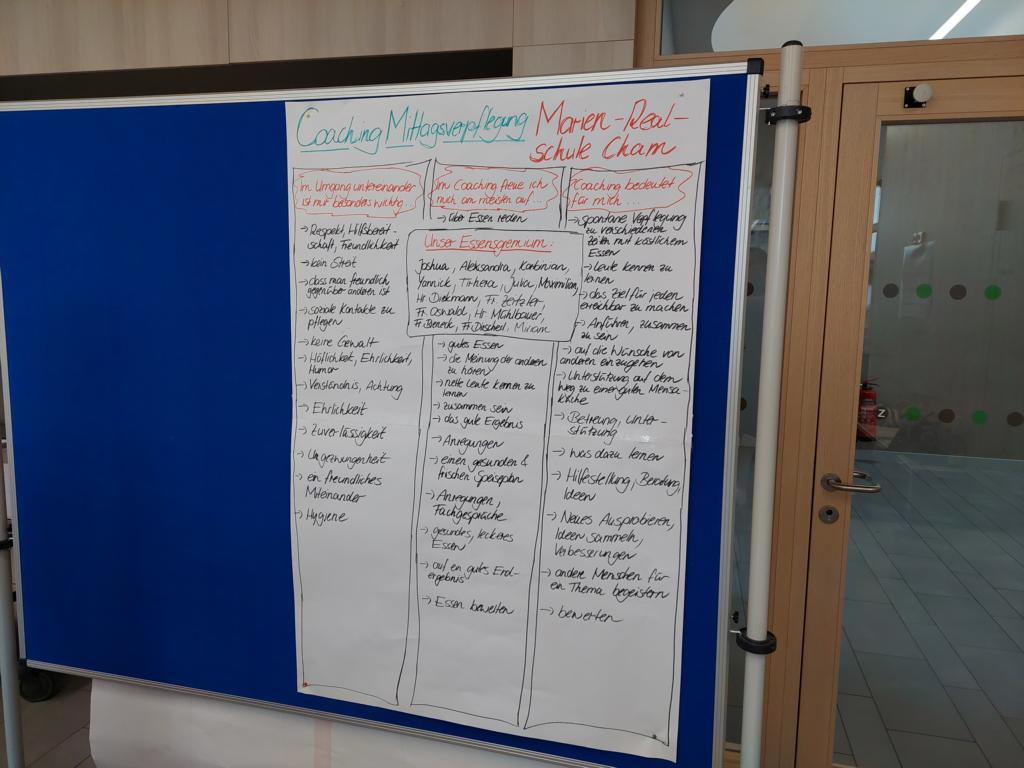 Coaching Mittagsverpflegung Marien-Real-
schule Cham
Im Umgang untereinander
ist mir besonders wichtig...
→ Respekt, Hilfsbereit-
schaft, Freundlichkeit
→ kein Streit
→ dass man freundlich
gegenüber anderen ist
→ soziale Kontakte zu
pflegen
→ keine Gewalt
→ Höflichkeit, Ehrlichkeit,
Humor
→ Verständnis, Achtung
→ Ehrlichkeit
→ Zuverlässigkeit
→ Ungezwungenheit
→ ein freundliches
Miteinander
→ Hygiene
Im Coaching freue ich
mich am meisten auf...
→ über Essen reden
Unser Essensgremium:
Joshua, Aleksandra, Korbinian,
Yannick, Julia, Maximilian,
Hr Diekmann, Fr. Zeitzler
Fr. Oswald, Hr Mühlbauer,
Fr. Beneck, Fr. Discherl, Miriam
→ gutes Essen
→ die Meinung der anderen
zu hören
→ nette Leute kennen zu
lernen
→ zusammen sein
→ das gute Ergebnis
→ Anregungen
→ einen gesunden &
frischen Speiseplan
→ Anregungen,
Fachgespräche
→ gesundes, leckeres
Essen
→ auf ein gutes End-
ergebnis
→ Essen bewerten
Coaching bedeutet
für mich...
→ spontane Verpflegung
zu verschiedenen
Zeiten mit köstlichem
Essen
→ Leute kennen zu
lernen
→ das Ziel für jeden
erreichbar zu machen
→ Anführen, zusammen
zu sein
→ auf die Wünsche von
anderen einzugehen
→ Unterstützung auf dem
Weg zu einer guten Mensa-
küche
→ Betreuung, Unter-
stützung
→ was dazu lernen
→ Hilfestellung, Beratung,
Ideen
→ Neues Ausprobieren,
Ideen sammeln,
Verbesserungen
→ andere Menschen für
ein Thema begeistern
→ bewerten